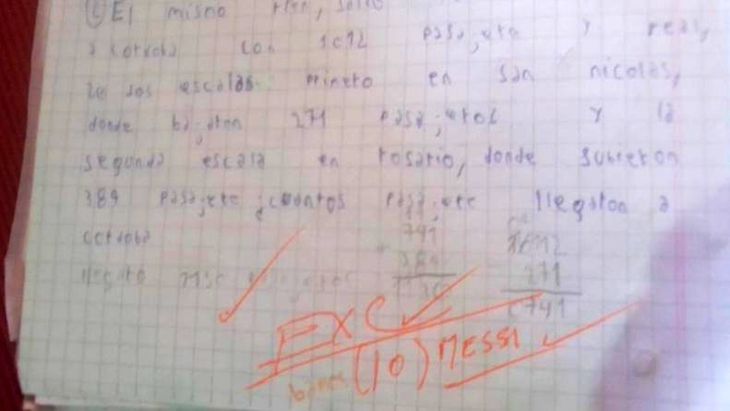 El mismo tren, salio
a cordoba con 1012 pasajero y real,
ze dos escalas: primero en san nicolas,
donde bajaron 271 pasajeros y la
segunda escala en rosario, donde subieron
389 pasajero ¿cuantos pasajero llegaron a
cordoba
741 1012
389 271
llegaron 1130 0741
EXC
(10) MESSI